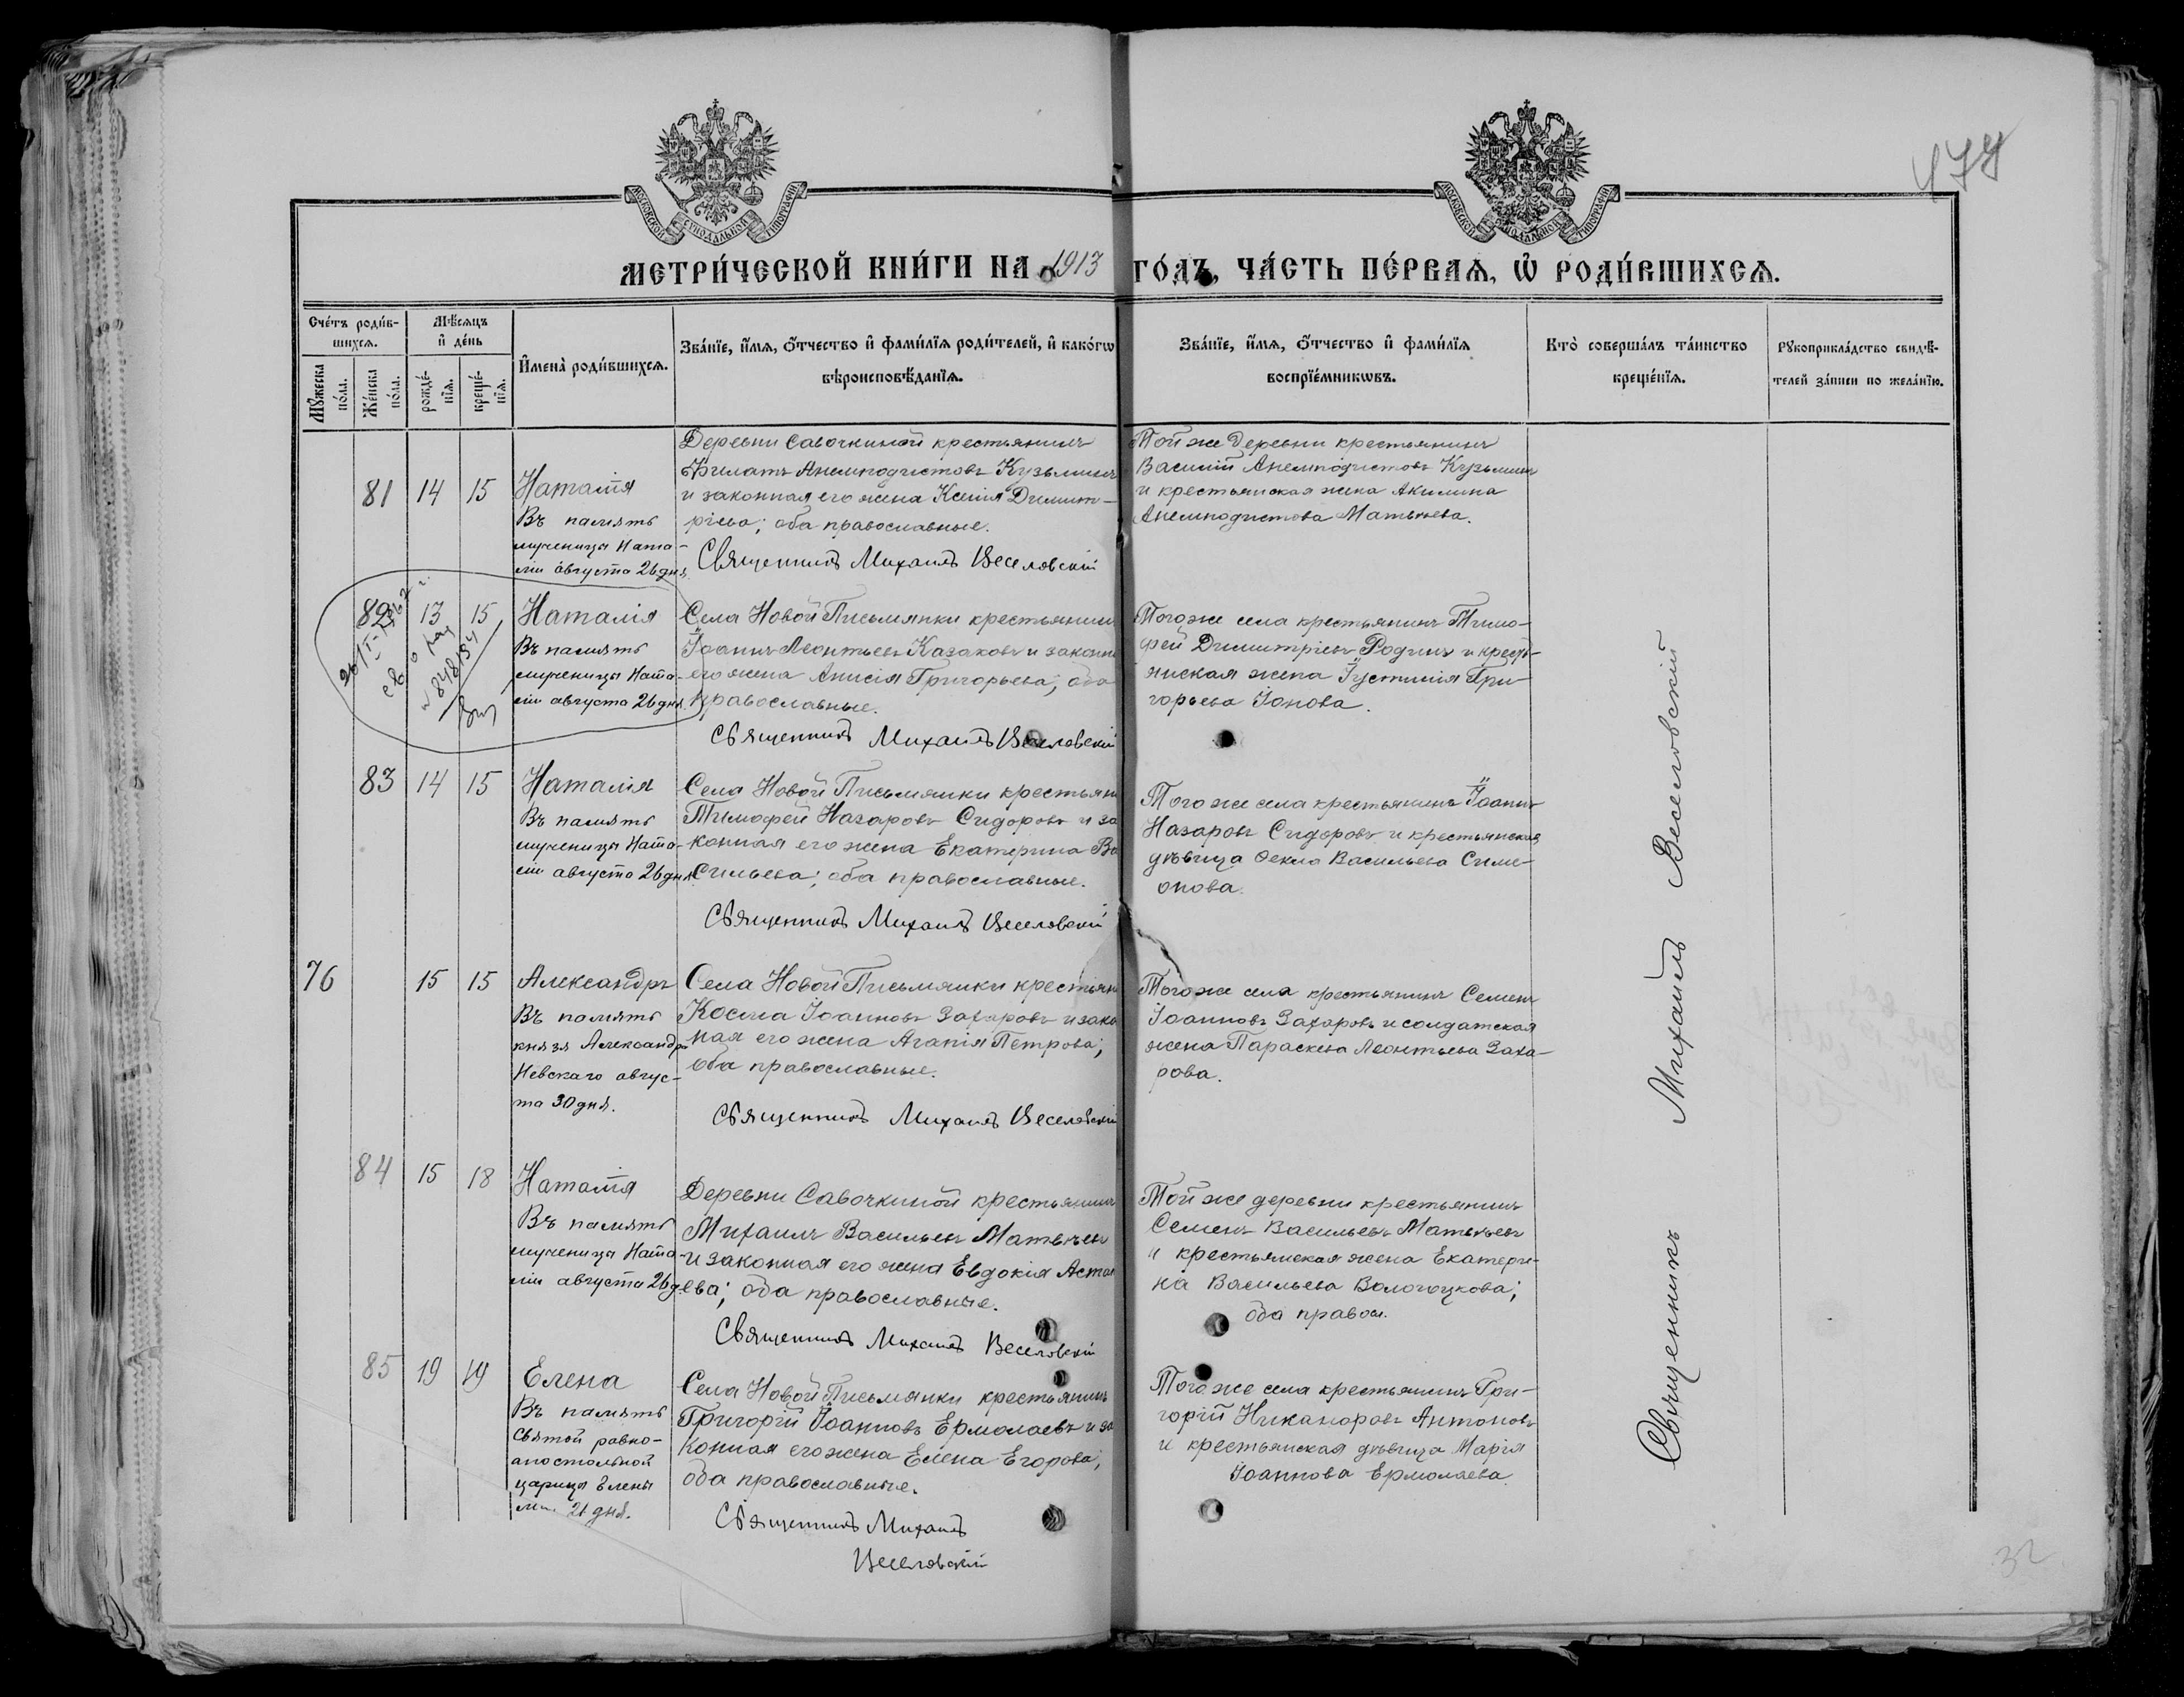 МОСКОВСКОЙ СѴНОДАЛЬНОЙ ТИПОГРАФІИ
МОСКОВСКОЙ СѴНОДАЛЬНОЙ ТИПОГРАФІИ
МЕТРИ́ЧЕСКОЙ КНИ́ГИ НА 1913 ГО́ДЪ, ЧА́СТЬ ПЕ́РВАЯ, Ѡ РОДИ́ВШИХСѦ.
Сче́тъ роди́в-
шихсѧ.
Мѣ́сѧцъ
и҆ де́нь
Мꙋ́жеска
по́ла.
Же́нска
по́ла.
рожде́-
нїѧ.
креще́-
нїѧ.
И҆мена̀ роди́вшихсѧ.
Зва́нїе, и҆́мѧ, ѻ҆́тчество и҆ фами́лїѧ роди́телей, и҆ како́гѡ
вѣроисповѣ́данїѧ.
Зва́нїе, и҆́мѧ, ѻ҆́тчество и҆ фами́лїѧ
воспрїе́мникѡвъ.
Кто̀ соверша́лъ та́инство
креще́нїѧ.
Рꙋкоприкла́дство свидѣ́-
телей за́писи по жела́нїю.
81 14 15
Наталія
Въ память
мученицы Ната-
ліи августа 26 дня
Деревни Савочкиной крестьянинъ
Филатъ Анемподистовъ Кузьминъ
и законная его жена Ксенія Димит-
ріева; оба православные.
Священникъ Михаилъ Веселовскій
Той же деревни крестьянинъ
Василій Анемподистовъ Кузьмин
и крестьянская жена Акилина
Анемподистова Матвѣева.
82 13 15
Наталія
Въ память
мученицы Ната-
ліи августа 26 дня
Села Новой Письмянки крестьянин
Іоаннъ Леонтьевъ Казаковъ и законн
его жена Анисія Григорьева; оба
православные.
Священникъ Михаилъ Веселовскій
Того же села крестьянинъ Тимо-
фей Димитріевъ Родинъ и кресть-
янская жена Іустинія Гри-
горьева Іонова.
83 14 15
Наталія
Въ память
мученицы Ната-
ліи августа 26 дня
Села Новой Письмянки крестьяни
Тимофей Назаровъ Сидоровъ и за
конная его жена Екатерина Ва
сильева; оба православные.
Священникъ Михаилъ Веселовскій
Того же села крестьянинъ Іоаннъ
Назаровъ Сидоровъ и крестьянская
дѣвица Ѳекла Васильева Симе-
онова.
76 15 15
Александръ
Въ память
князя Александра
Невскаго авгус-
та 30 дня.
Села Новой Письмянки крестьяни
Косма Іоанновъ Захаровъ и зако
ная его жена Агапія Петрова;
оба православные.
Священникъ Михаилъ Веселовскій
Того же села крестьянинъ Семенъ
Іоанновъ Захаровъ и солдатская
жена Параскева Леонтьева Заха-
рова.
84 15 18
Наталія
Въ память
мученицы Ната-
ліи августа 26 д
Деревни Савочкиной крестьянинъ
Михаилъ Васильевъ Матвѣевъ
и законная его жена Евдокія Аста
ева; оба православные.
Священникъ Михаилъ Веселовскій
Той же деревни крестьянинъ
Семенъ Васильевъ Матвѣевъ
и крестьянская жена Екатери-
на Васильева;
оба правосл.
85 19 19
Елена
Въ память
святой равно-
апостольной
царицы Елены
21 дня.
Села Новой Письмянки крестьянинъ
Григорій Іоанновъ Ермолаевъ и за
конная его жена Елена Егорова;
оба православные.
Священникъ Михаилъ
Веселовскій
Того же села крестьянинъ Гри-
горій Никаноровъ Антоновъ
и крестьянская дѣвица Марія
Іоаннова Ермолаева
Священникъ Михаилъ Веселовскій
32